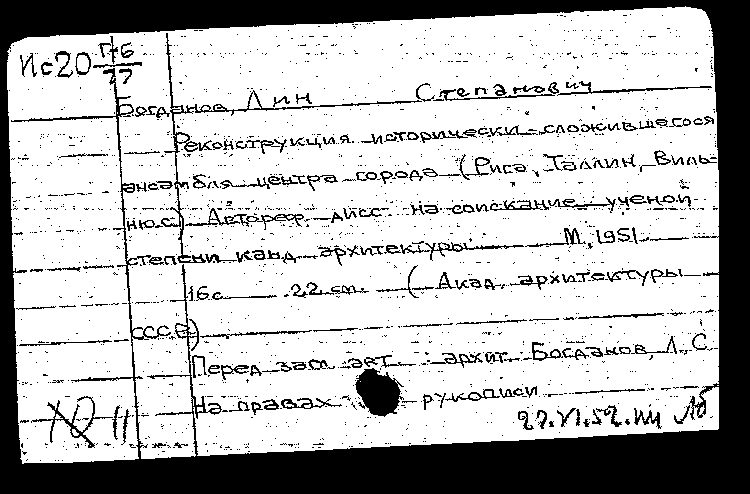 Ис20 Г-6
77
Богданов, Лин Степанович
Реконструкция исторически-сложившегося
ансамбля центра города (Рига, Таллин, Виль-
нюс) Автореф. дисс. на соискание ученой
степени канд. архитектуры М, 1951
16с 22 см. (Акад. архитектуры
СССР)
Перед загл. авт.: архит. Богданов, Л. С.
На правах рукописи
11